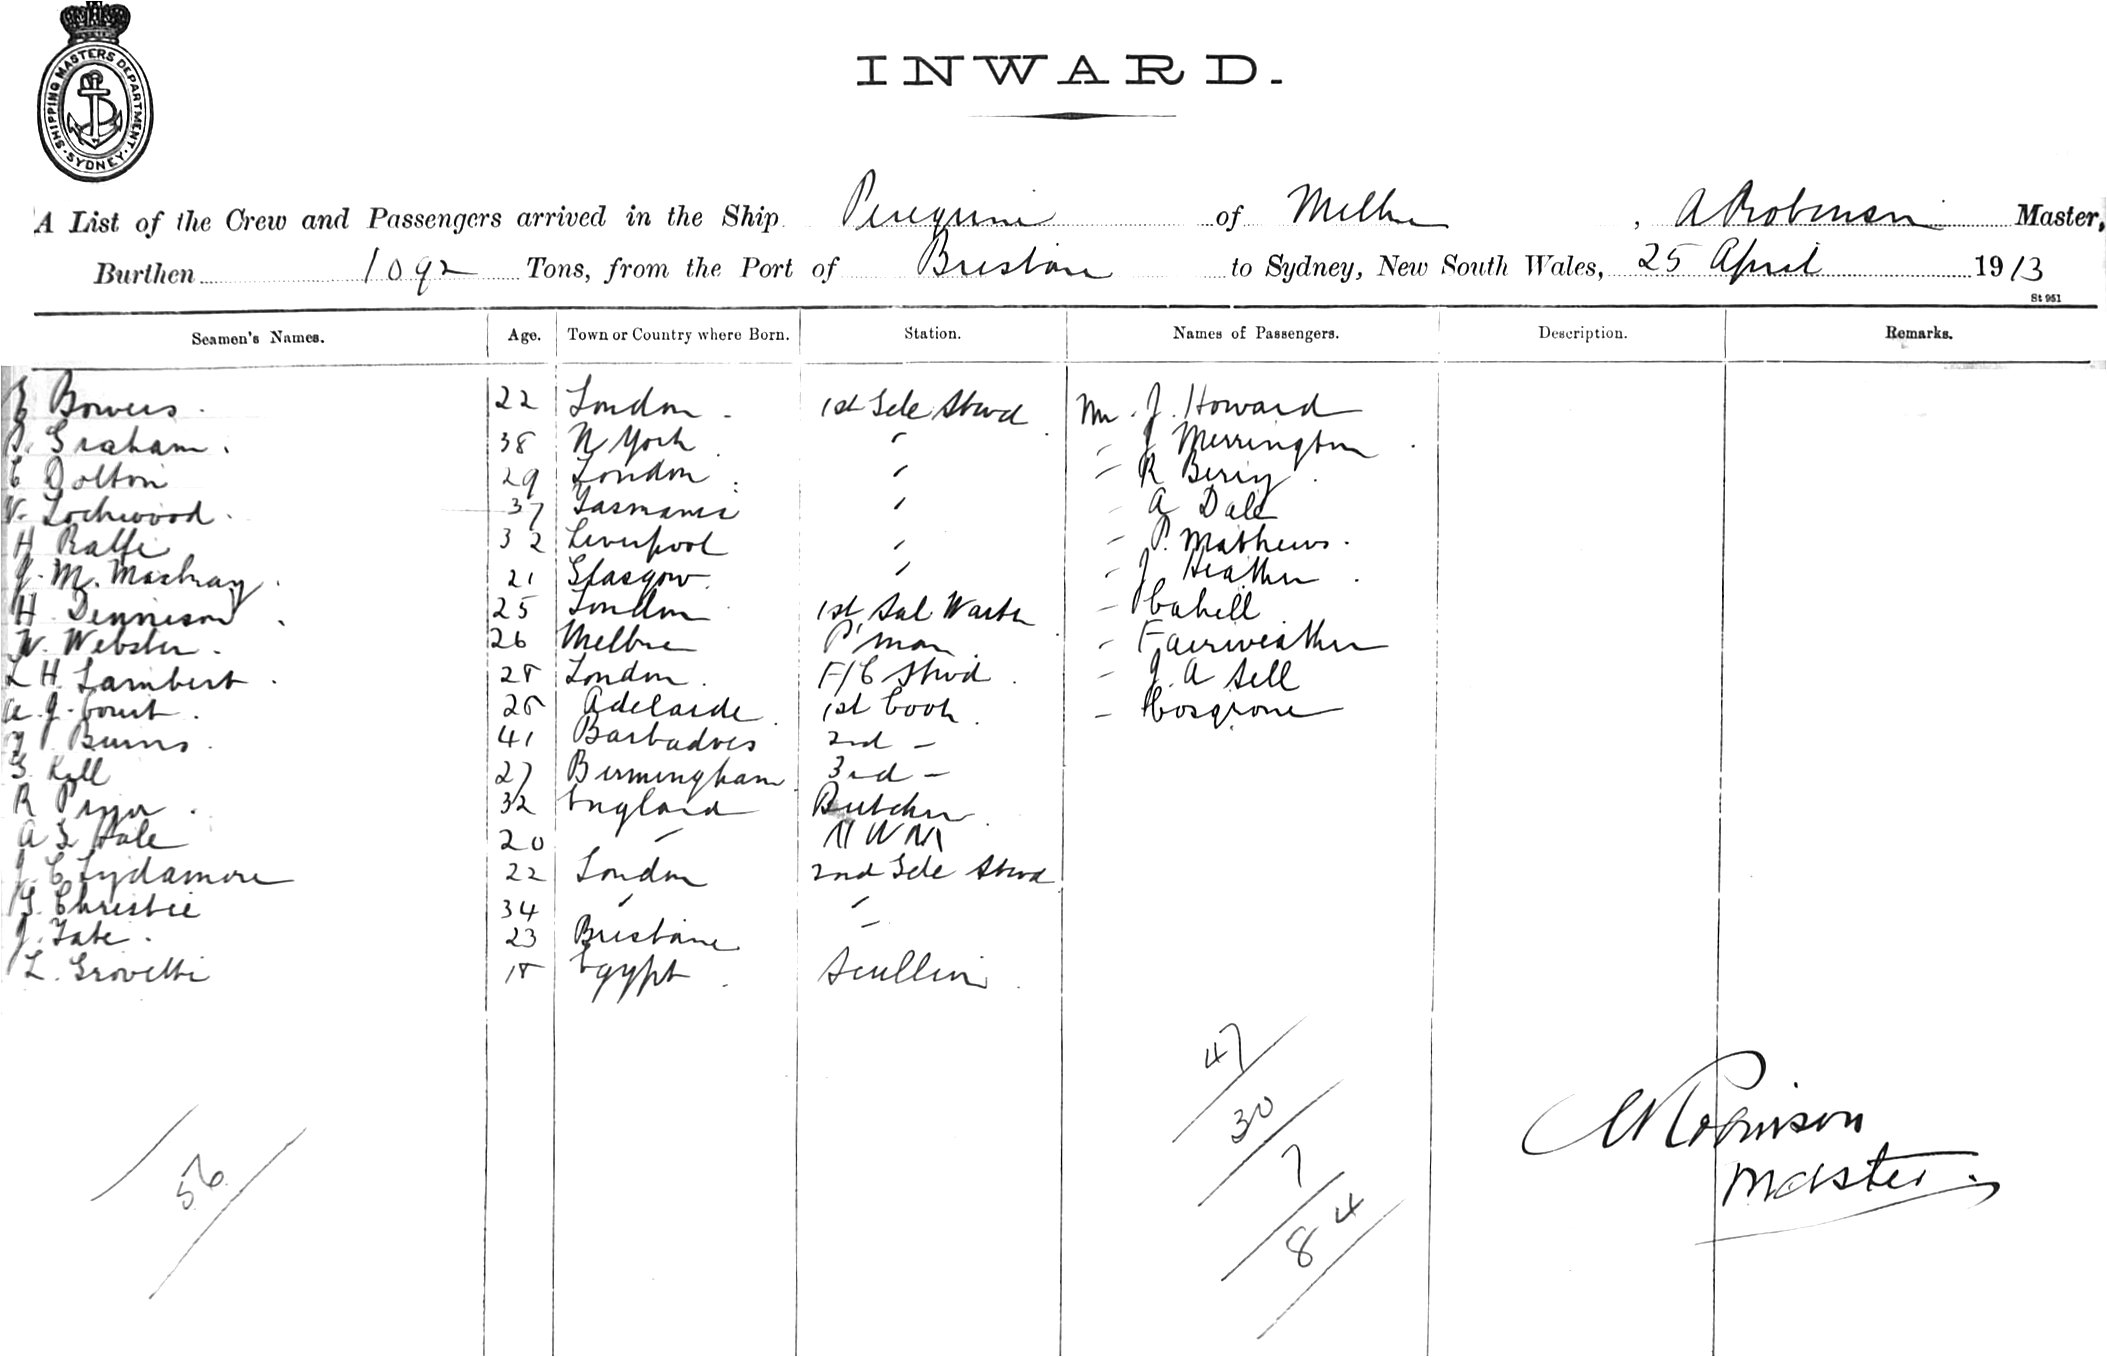 SHIPPING MASTERS DEPARTMENT · SYDNEY ·
INWARD.
A List of the Crew and Passengers arrived in the Ship Peregrine of Melbne, A Robinson Master,
Burthen 1092 Tons, from the Port of Brisbane to Sydney, New South Wales, 25 April 1913
St 951
Seamen's Names. Age. Town or Country where Born. Station. Names of Passengers. Description. Remarks.
Bowers. 22 London 1st Sele Stwd Mr. J. Howard
Graham. 38 N York " " J Merrington
C Dolton 29 London " " R Berry
W. Lockwood. 37 Tasmania " " A Dale
H Ralfe 32 Liverpool " " P. Mathews.
J. M. Mackay. 21 Glasgow " " J Heather
H Dennison 25 London 1st Sal Waiter " Cahill
W. Webster. 26 Melbne P'man " Fairweather
L H Lambert. 28 London F/C Stwd " J. A Sell
A. J. Court. 28 Adelaide 1st Cook " Cosgrove
Burns. 41 Barbadoes 2nd "
G. Kell 27 Birmingham 3rd "
R Pryor. 32 England Butcher
A G Hale 20 " NWM
J. C Sydamore 22 London 2nd Sele Stwd
G. Christie 34 " "
J. Tate. 23 Brisbane "
L. Grovetti 18 Egypt Scullion
47
30
7
84
56
A Robinson
Master